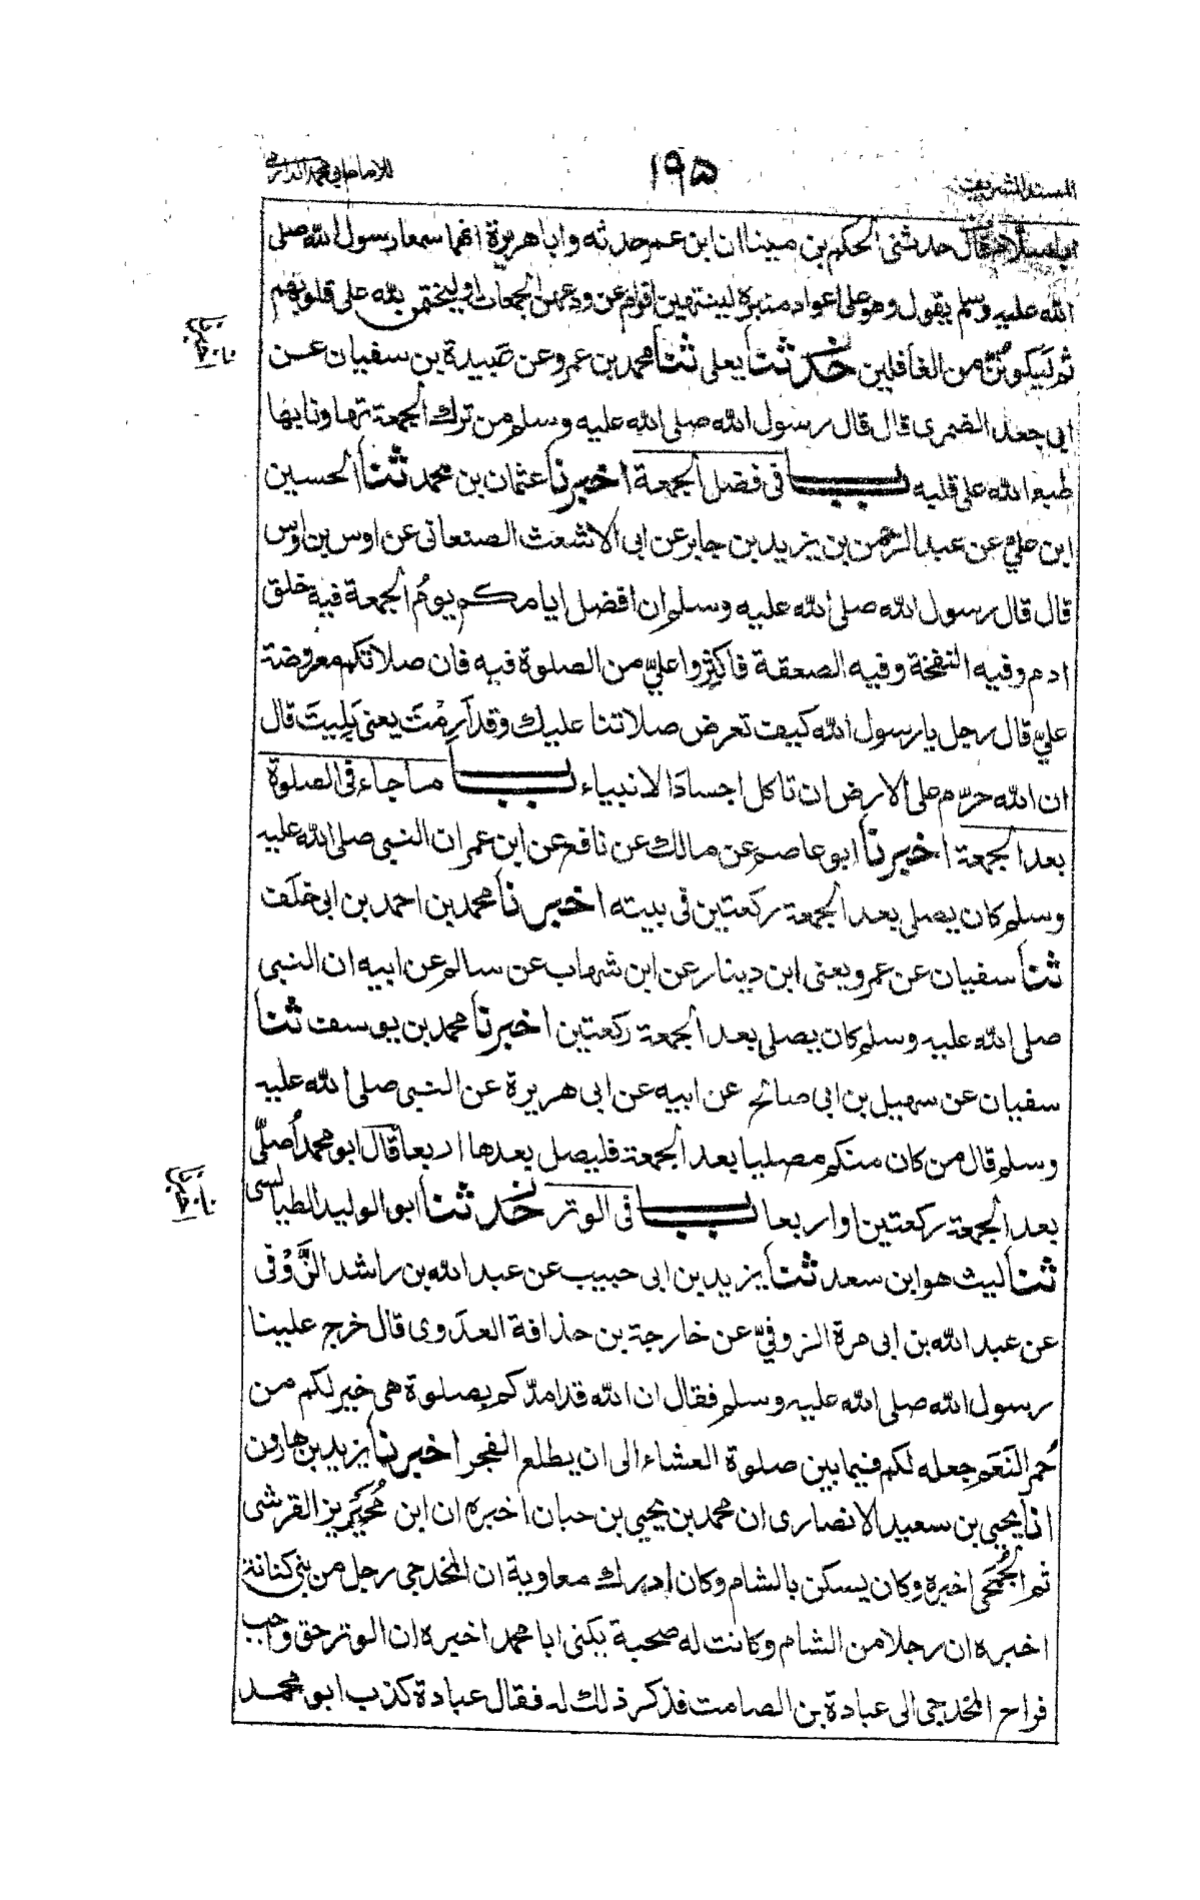 المسند الشريف ١٩٥ للامام ابي محمد الدارمي
ابا سلام قال حدثنى الحكم بن مينا ان ابن عمر حدثه وابا هريرة انهما سمعا رسول الله صلى
الله عليه وسلم يقول وهو على اعواد منبره لينتهين اقوام عن ودعهم الجمعات او ليختمن الله على قلوبهم
ثم ليكونن من الغافلين حدثنا يعلى ثنا محمد بن عمرو عن عبيدة بن سفيان عن
ابى جعد الضمرى قال قال رسول الله صلى الله عليه وسلم من ترك الجمعة تهاونا بها
طبع الله على قلبه باب فى فضل الجمعة اخبرنا عثمان بن محمد ثنا الحسين
ابن على عن عبد الرحمن بن يزيد بن جابر عن ابى الاشعث الصنعانى عن اوس بن اوس
قال قال رسول الله صلى الله عليه وسلم ان افضل ايامكم يومُ الجمعة فيه خلق
ادم وفيه النفخة وفيه الصعقة فاكثروا علىّ من الصلوة فيه فان صلاتكم معروضة
علىّ قال رجل يا رسول الله كيف تعرض صلاتنا عليك وقد اَرِمْتَ يعنى بَلِيتَ قال
ان الله حرّم على الارض ان تاكل اجسادَ الانبياء باب ما جاء فى الصلوة
بعد الجمعة اخبرنا ابو عاصم عن مالك عن نافع عن ابن عمر ان النبى صلى الله عليه
وسلم كان يصلى بعد الجمعة ركعتين فى بيته اخبرنا محمد بن احمد بن ابى خلَف
ثنا سفيان عن عمرو يعنى ابن دينار عن ابن شهاب عن سالم عن ابيه ان النبى
صلى الله عليه وسلم كان يصلى بعد الجمعة ركعتين اخبرنا محمد بن يوسف ثنا
سفيان عن سهيل بن ابى صالح عن ابيه عن ابى هريرة عن النبى صلى الله عليه
وسلم قال من كان منكم مصليا بعد الجمعة فليصل بعدها اربعا قال ابو محمد اُصلّى
بعد الجمعة ركعتين او اربعا باب فى الوتر حدثنا ابو الوليد الطيالسى
ثنا ليث هو ابن سعد ثنا يزيد بن ابى حبيب عن عبد الله بن راشد الزَّوْفى
عن عبد الله بن ابى مرة الزوفىّ عن خارجة بن حذافة العدَوى قال خرج علينا
رسول الله صلى الله عليه وسلم فقال ان الله قد امدّكم بصلوة هى خير لكم من
حُمر النَعَم جعله لكم فيما بين صلوة العشاء الى ان يطلع الفجر اخبرنا يزيد بن هارون
انا يحيى بن سعيد الانصارى ان محمد بن يحيى بن حبان اخبره ان ابن مُحَيْرِيز القرشى
ثم الجُمَحى اخبره وكان يسكن بالشام وكان ادرك معاوية ان المخدجى رجل من بنى كنانة
اخبره ان رجلا من الشام وكانت له صحبة يكنى ابا محمد اخبره ان الوتر حق واجب
فراح المخدجى الى عبادة بن الصامت فذكر ذلك له فقال عبادة كذب ابو محمد